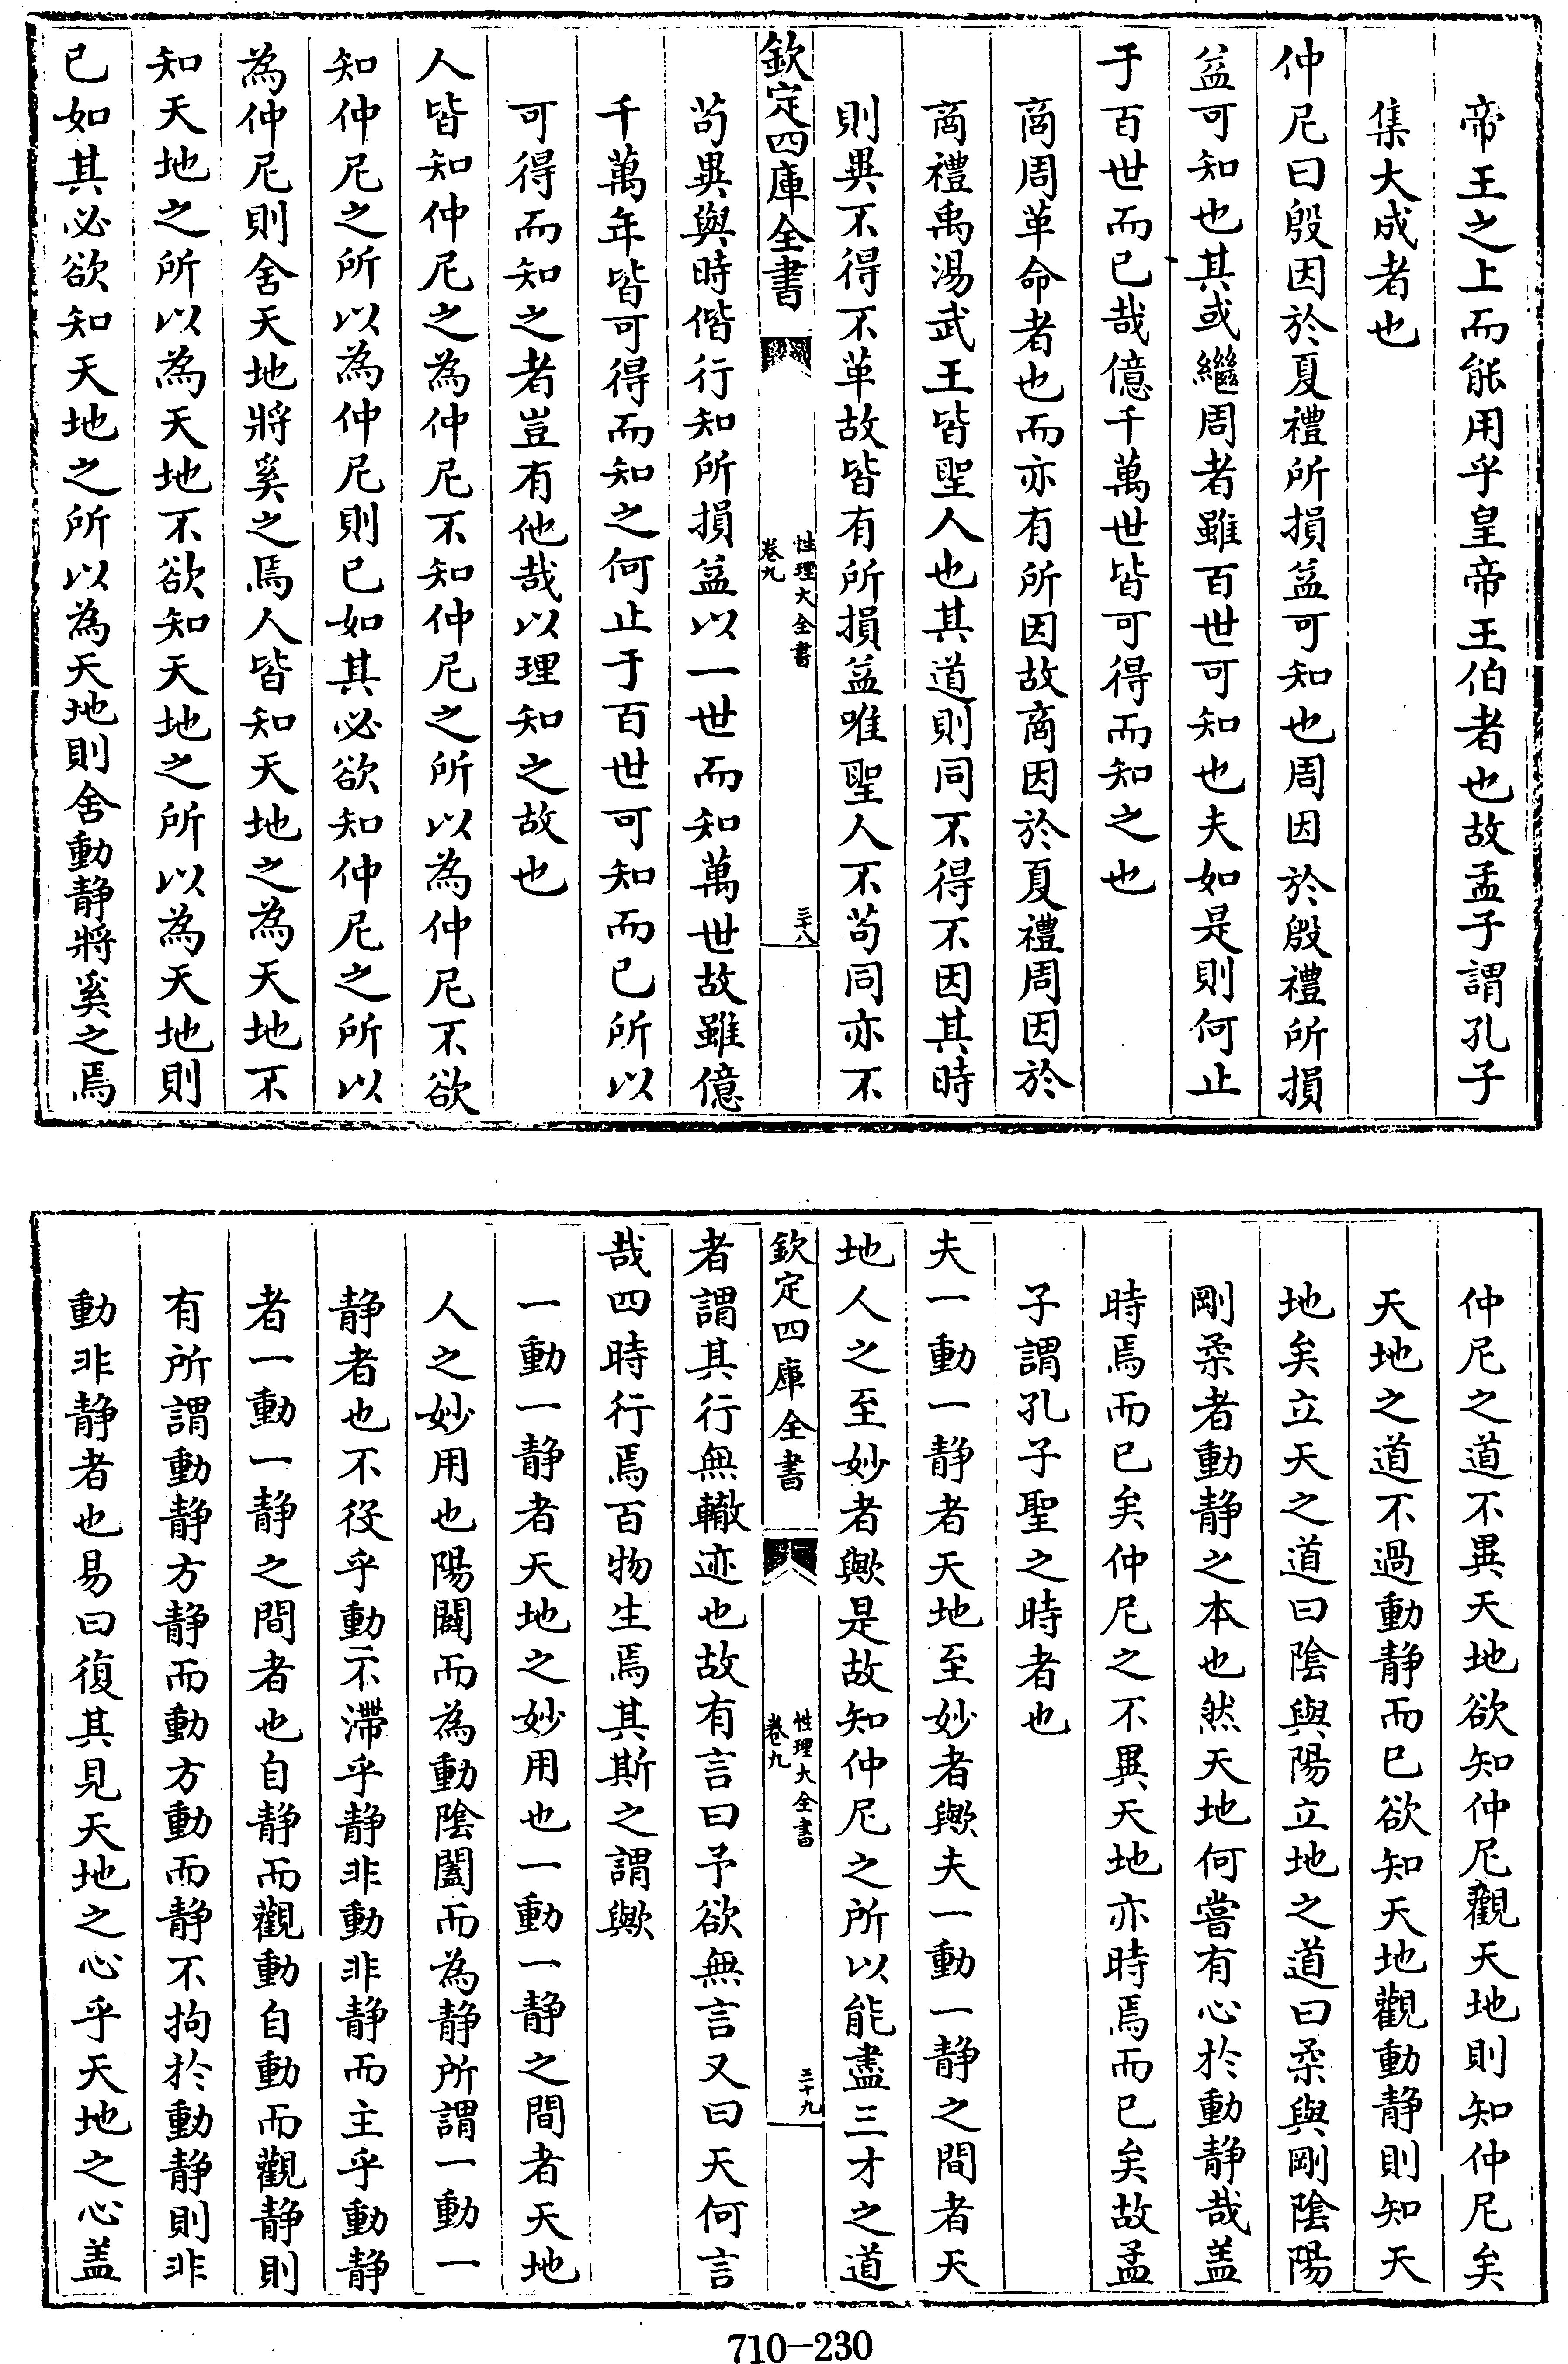 帝王之上而能用乎皇帝王伯者也故孟子謂孔子
集大成者也
仲尼曰殷因於夏禮所損益可知也周因於殷禮所損
益可知也其或繼周者雖百世可知也夫如是則何止
于百世而已哉億千萬世皆可得而知之也
商周革命者也而亦有所因故商因於夏禮周因於
商禮禹湯武王皆聖人也其道則同不得不因其時
則異不得不革故皆有所損益唯聖人不苟同亦不
欽定四庫全書
性理大全書
卷九
三十八
苟異與時偕行知所損益以一世而知萬世故雖億
千萬年皆可得而知之何止于百世可知而已所以
可得而知之者豈有他哉以理知之故也
人皆知仲尼之為仲尼不知仲尼之所以為仲尼不欲
知仲尼之所以為仲尼則已如其必欲知仲尼之所以
為仲尼則舍天地將奚之焉人皆知天地之為天地不
知天地之所以為天地不欲知天地之所以為天地則
已如其必欲知天地之所以為天地則舍動静將奚之焉
仲尼之道不異天地欲知仲尼觀天地則知仲尼矣
天地之道不過動静而已欲知天地觀動静則知天
地矣立天之道曰陰與陽立地之道曰柔與剛陰陽
剛柔者動静之本也然天地何嘗有心於動静哉盖
時焉而已矣仲尼之不異天地亦時焉而已矣故孟
子謂孔子聖之時者也
夫一動一静者天地至妙者歟夫一動一静之間者天
地人之至妙者歟是故知仲尼之所以能盡三才之道
欽定四庫全書
性理大全書
卷九
三十九
者謂其行無轍迹也故有言曰予欲無言又曰天何言
哉四時行焉百物生焉其斯之謂歟
一動一静者天地之妙用也一動一静之間者天地
人之妙用也陽闢而為動陰闔而為静所謂一動一
静者也不役乎動不滯乎静非動非静而主乎動静
者一動一静之間者也自静而觀動自動而觀静則
有所謂動静方静而動方動而静不拘於動静則非
動非静者也易曰復其見天地之心乎天地之心盖
710-230